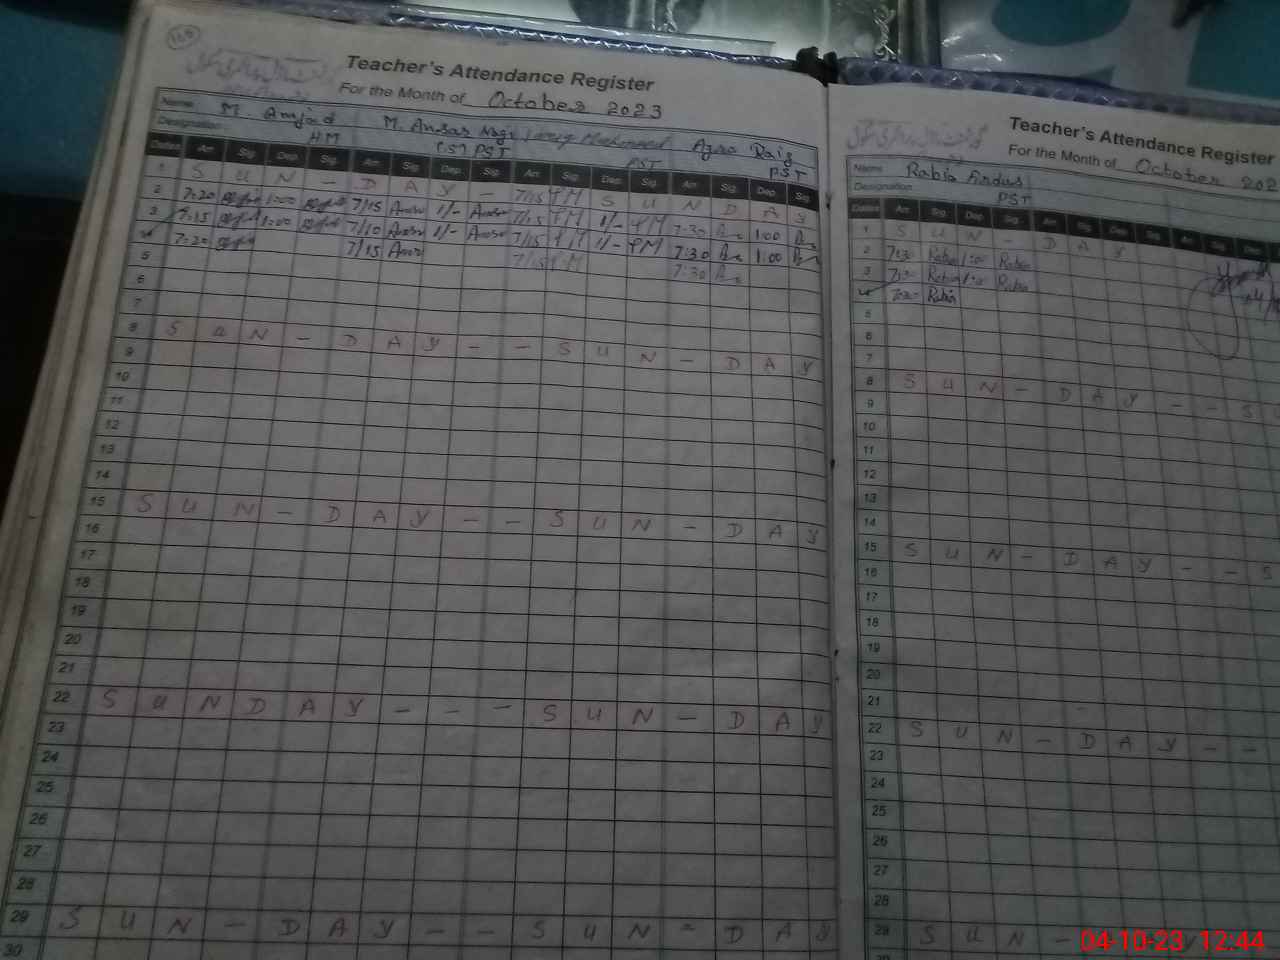 168
Teacher's Attendance Register
For the Month of October 2023
Name M. Amjad M. Ansar Azra
Designation HM PST PST PST
Dates Arr. Sig. Dep. Sig. Arr. Sig. Dep. Sig. Arr. Sig. Dep. Sig. Arr. Sig. Dep. Sig.
1 S U N - D A Y - 7/15 S U N D A Y
2 7:20 1:00 7/15 Ansar 1/- Ansar 7/15 1/- 7:30 1:00
3 7:15 1:00 7/10 Ansar 1/- Ansar 7/15 1/- 7:30 1:00
4 7:20 7/15 Ansar 7/15 7:30
5
6
7
8 S U N - D A Y - - S U N - D A Y
9
10
11
12
13
14
15 S U N - D A Y - - S U N - D A Y
16
17
18
19
20
21
22 S U N D A Y - - - S U N - D A Y
23
24
25
26
27
28
29 S U N - D A Y - - S U N - D A Y
30
Teacher's Attendance Register
For the Month of October 202
Name Rabia Firdus
Designation PST
Dates Arr. Sig. Dep. Sig. Arr. Sig. Dep. Sig. Arr. Sig. Dep.
1 S U N - D A Y
2 7:30 Rabia 1:0 Rabia
3 7:30 Rabia 1:0 Rabia
4 7:30 Rabia
5
6
7
8 S U N - D A Y - - S U
9
10
11
12
13
14
15 S U N - D A Y - - S
16
17
18
19
20
21
22 S U N - D A Y - -
23
24
25
26
27
28
29 S U N -
30
04-10-23 12:44